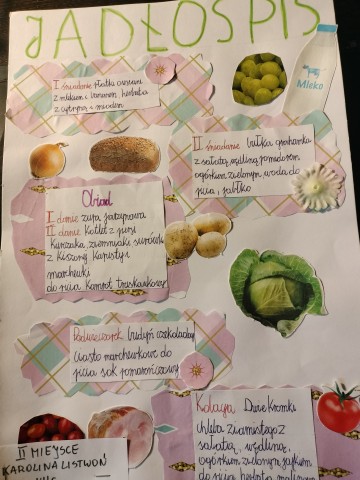 JADŁOSPIS
Mleko
I śniadanie płatki owsiane
z mlekiem i bananem herbata
z cytryną i miodem
II śniadanie bułka grahamka
z sałatą, wędliną, pomidorem
ogórkiem zielonym, woda do
picia, jabłko
Obiad
I danie zupa jarzynowa
II danie Kotlet z piersi
Kurczaka ziemniaki surówka
z kiszonej Kapusty i
marchewki
do picia Kompot truskawkowy
Podwieczorek budyń czekoladowy
ciasto marchewkowe do
picia sok pomarańczowy
Kolacja Dwie Kromki
chleba żwirnistego z
sałatą, wędliną,
ogórkiem zielonym, jajkiem
do picia herbata malinowa
II MIEJSCE
KAROLINA LISTWOŃ